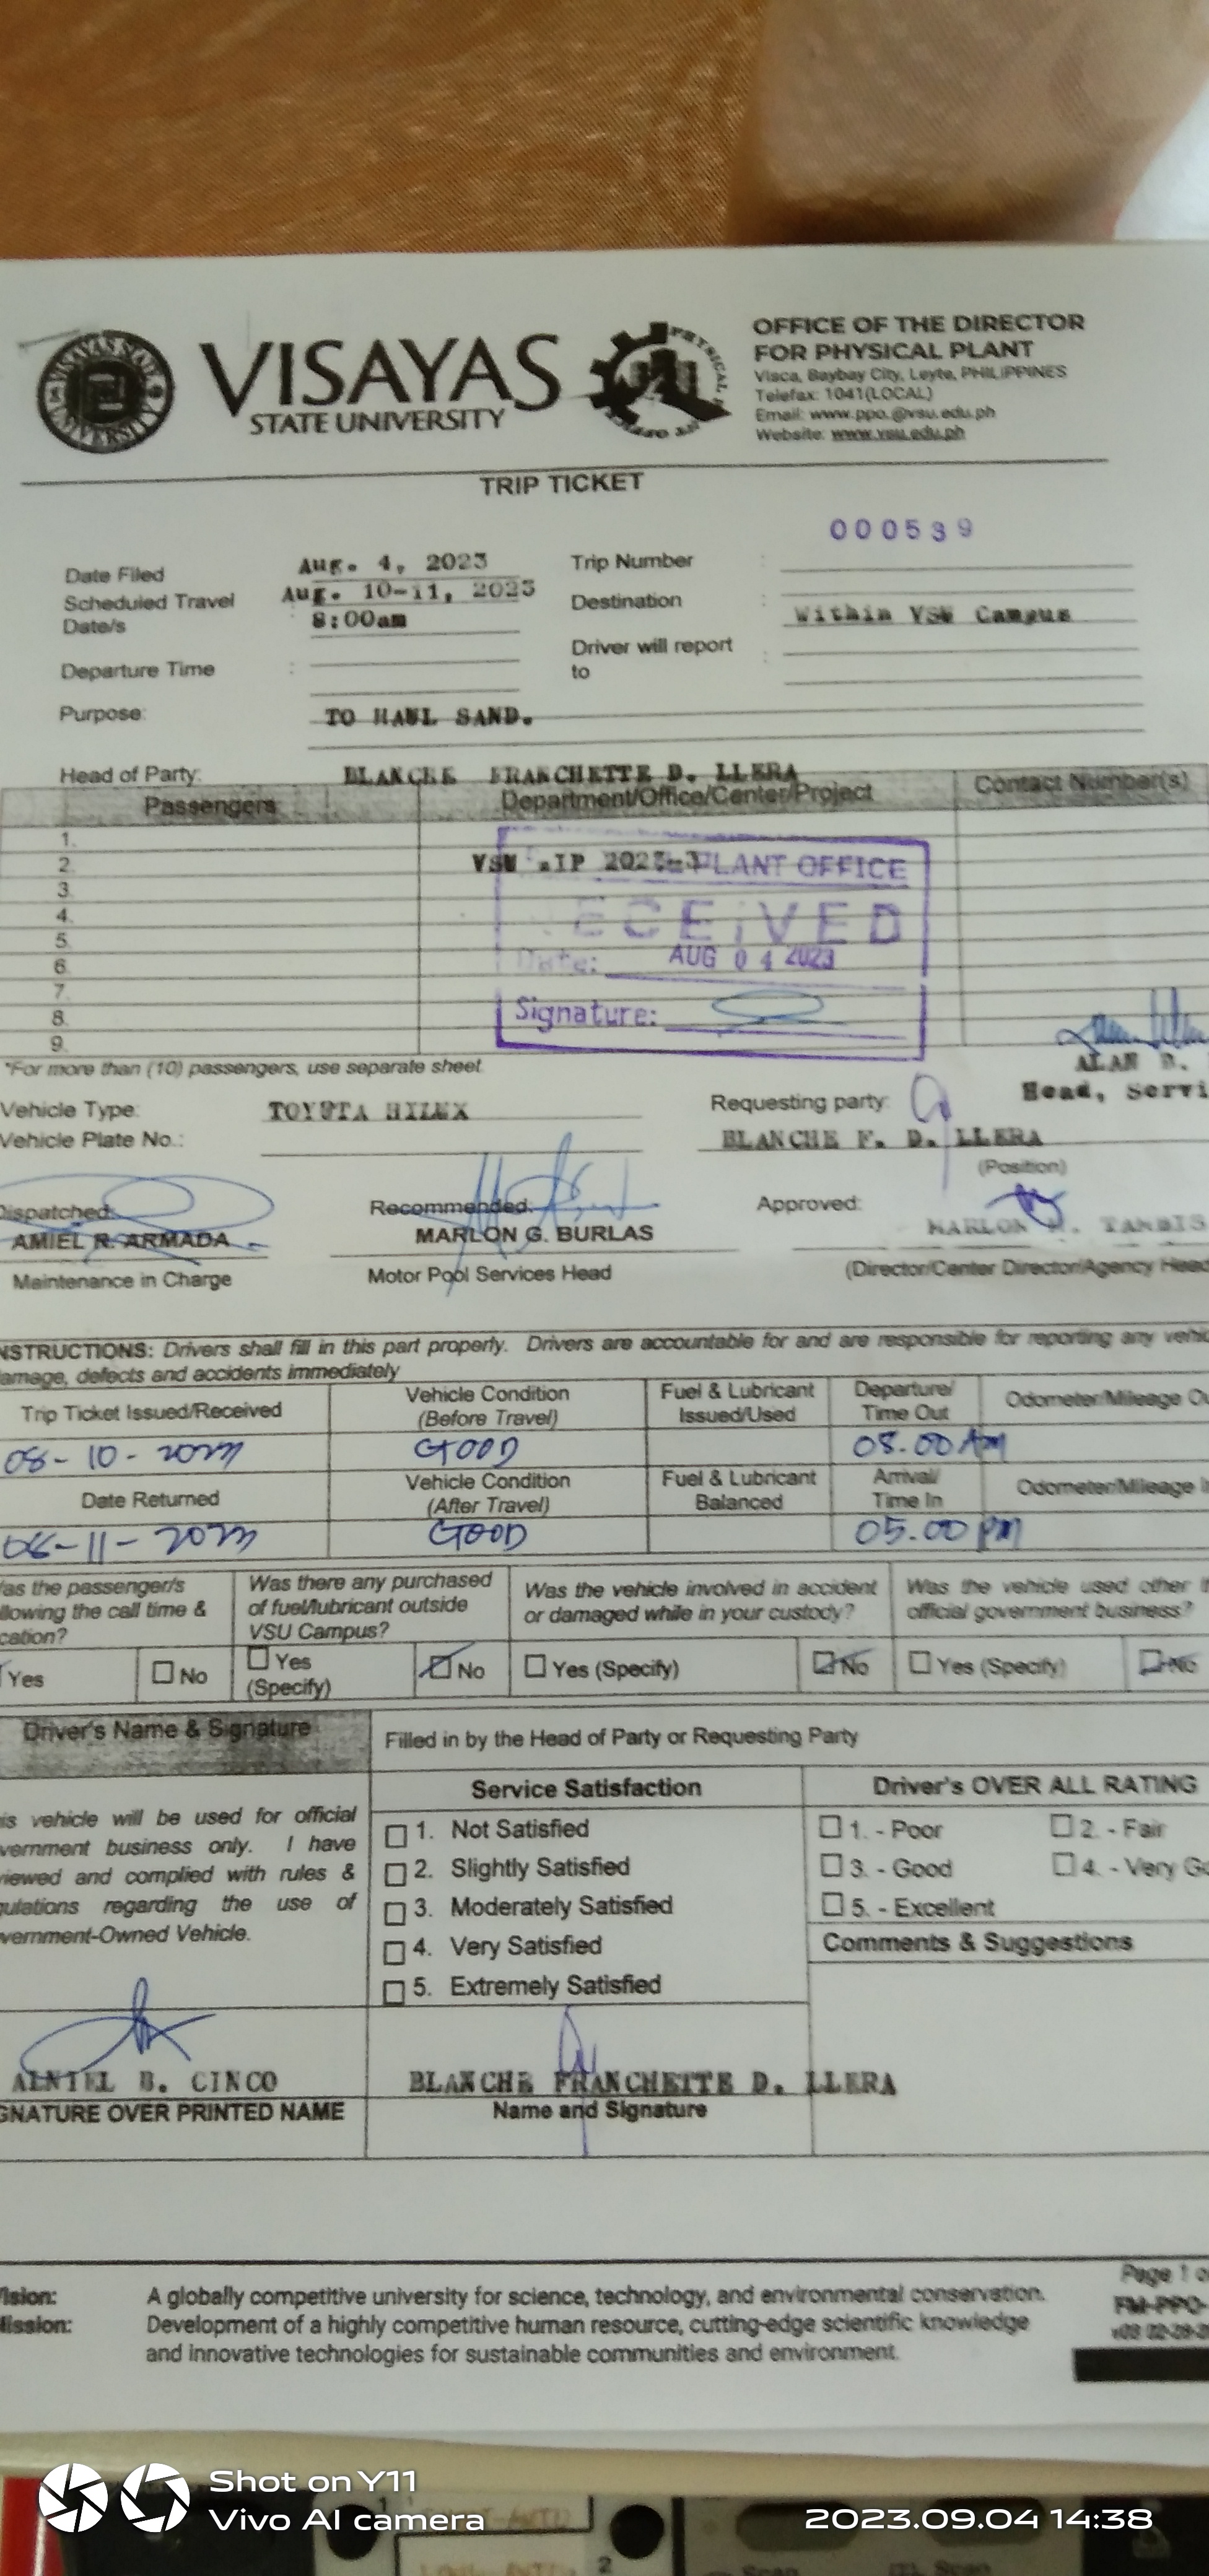 VISAYAS
STATE UNIVERSITY
VISAYAS STATE UNIVERSITY
PHYSICAL
OFFICE OF THE DIRECTOR
FOR PHYSICAL PLANT
Visca, Baybay City, Leyte, PHILIPPINES
Telefax: 1041(LOCAL)
Email: www.ppo.@vsu.edu.ph
Website: www.vsu.edu.ph
TRIP TICKET
000539
Date Filed Aug. 4, 2023 Trip Number :
Scheduled Travel Date/s : Aug. 10-11, 2023 8:00am Destination : Within VSU Campus
Departure Time : Driver will report to :
Purpose: TO HAUL SAND.
Head of Party: BLANCHE FRANCHETTE D. LLERA
Passengers Department/Office/Center/Project Contact Number(s)
1.
2. VSU IP
3.
4.
5.
6.
7.
8.
9.
PLANT OFFICE
RECEIVED
Date: AUG 04 2023
Signature:
*For more than (10) passengers, use separate sheet
ALAN B.
Head, Servi
Vehicle Type: TOYOTA HILUX Requesting party:
Vehicle Plate No.: BLANCHE F. D. LLERA
(Position)
Dispatched: Recommended: Approved:
AMIEL R. ARMADA MARLON G. BURLAS MARLON TAMBIS
Maintenance in Charge Motor Pool Services Head (Director/Center Director/Agency Head
NSTRUCTIONS: Drivers shall fill in this part properly. Drivers are accountable for and are responsible for reporting any vehic
amage, defects and accidents immediately
Trip Ticket Issued/Received Vehicle Condition (Before Travel) Fuel & Lubricant Issued/Used Departure/ Time Out Odometer/Mileage Ou
08-10-2023 GOOD 08.00 AM
Date Returned Vehicle Condition (After Travel) Fuel & Lubricant Balanced Arrival/ Time In Odometer/Mileage I
08-11-2023 GOOD 05.00 PM
as the passenger/s
llowing the call time &
cation?
Was there any purchased
of fuel/lubricant outside
VSU Campus?
Was the vehicle involved in accident
or damaged while in your custody?
Was the vehicle used other t
official government business?
Yes No Yes (Specify) No Yes (Specify) No Yes (Specify) No
Driver's Name & Signature Filled in by the Head of Party or Requesting Party
Service Satisfaction Driver's OVER ALL RATING
is vehicle will be used for official
vernment business only. I have
iewed and complied with rules &
gulations regarding the use of
vernment-Owned Vehicle.
1. Not Satisfied
2. Slightly Satisfied
3. Moderately Satisfied
4. Very Satisfied
5. Extremely Satisfied
1. - Poor 2. - Fair
3. - Good 4. - Very Go
5. - Excellent
Comments & Suggestions
B. CINCO BLANCHE FRANCHETTE D. LLERA
GNATURE OVER PRINTED NAME Name and Signature
Page 1 o
ision: A globally competitive university for science, technology, and environmental conservation. FM-PPO-
ission: Development of a highly competitive human resource, cutting-edge scientific knowledge
and innovative technologies for sustainable communities and environment.
Shot on Y11
Vivo AI camera
2023.09.04 14:38